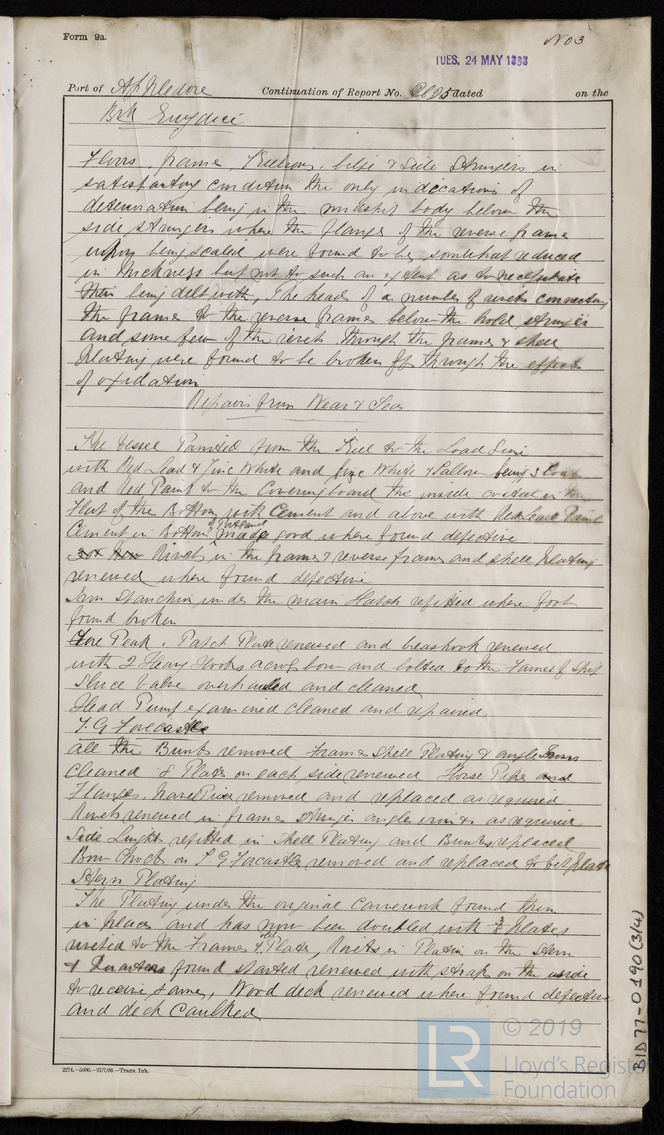 Form 9a.
No 3
TUES. 24 MAY 1898
Port of Appledore Continuation of Report No. 2095 dated on the
Brk Eurydice
Floors, frames, Keelsons, bilge & side Stringers in
satisfactory condition the only indications of
deterioration being in the midship body below the
side stringers where the flanges of the reverse frame
upon being scaled were found to be somewhat reduced
in thickness but not to such an extent as to necessitate
their being delt with, The heads of a number of rivets connecting
the frames to the reverse frames below the hold stringer
and some few of the rivets through the frames & shell
plating were found to be broken off through the effects
of oxidation
Repairs from Wear & Tear
The Vessel Painted from the Keel to the Load Line
with Red Lead & Zinc White and Zinc White & Tallow being 3 Coats
and Red Paint to the Coveringboard the inside coated in the
Flat of the Bottom with Cement and above with Red Lead Paint
Cement in Bottom of Portland made good where found defective
Rivets in the frames & reverse frames and shell plating
renewed where found defective
Iron Stanchion under the main Hatch refitted where foot
found broken
Fore Peak. Patch Plate renewed and breasthook renewed
with 2 Heavy Hooks across bow and bolted to the Frames of Ship
Sluice Valve overhauled and cleaned
Head Pump examined cleaned and repaired
T. G. Forecastle
all the Bunks removed Frames Shell Plating & angle Irons
Cleaned 8 Plates on each side renewed Horse Pipes and
Flanges. removed and replaced as required
Rivets renewed in frames Stringer angle irons as required
Side Lights refitted in Shell Plating and Bunks replaced
Bow Chock on T. G. Forcastle removed and replaced to
Stern Plating
The Plating under the original Carvework found thin
in places and has now been doubled with plates
riveted to the Frames & Plate, Rivets in Plating on the Stern
& Quarters found started renewed with straps on the inside
to receive same, Wood deck renewed where found defective
and deck caulked
2274.—5000.—27/7/96.—Trans. Ink.
BID77-0190 (3/4)
LR
© 2019
Lloyd's Register
Foundation